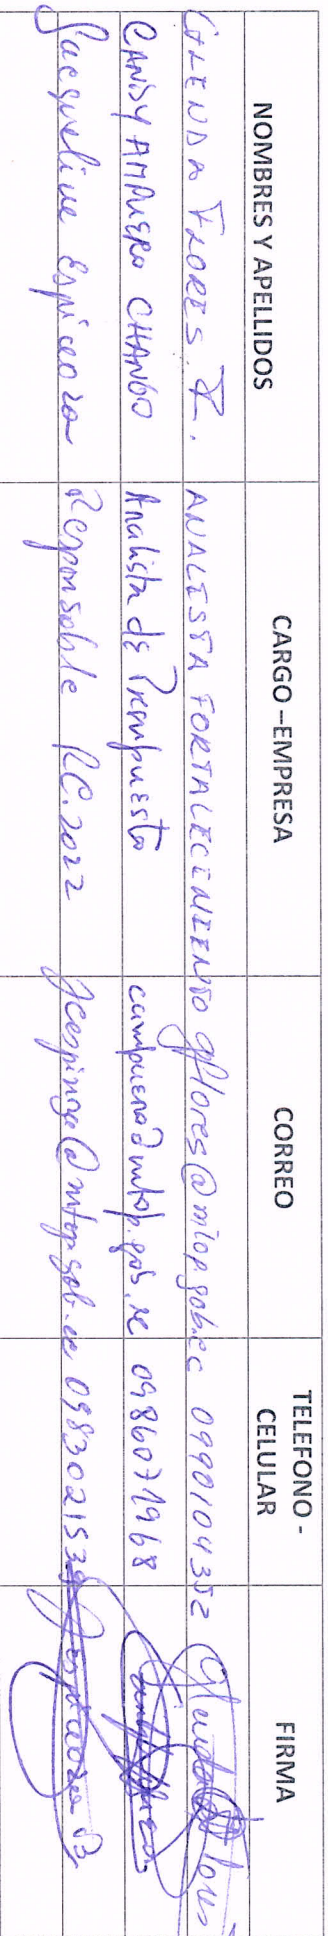 NOMBRES Y APELLIDOS CARGO –EMPRESA CORREO TELEFONO - CELULAR FIRMA
GLENDA FLORES. ANALISTA FORTALECIMIENTO gflores@mtop.gob.ec 0990104352
CANDY AMPUERO CHANGO Analista de Presupuesto campuero@mtop.gob.ec 0986071968
Jacqueline Espinoza Responsable RC.2022 jcespinoza@mtop.gob.ec 0983021539